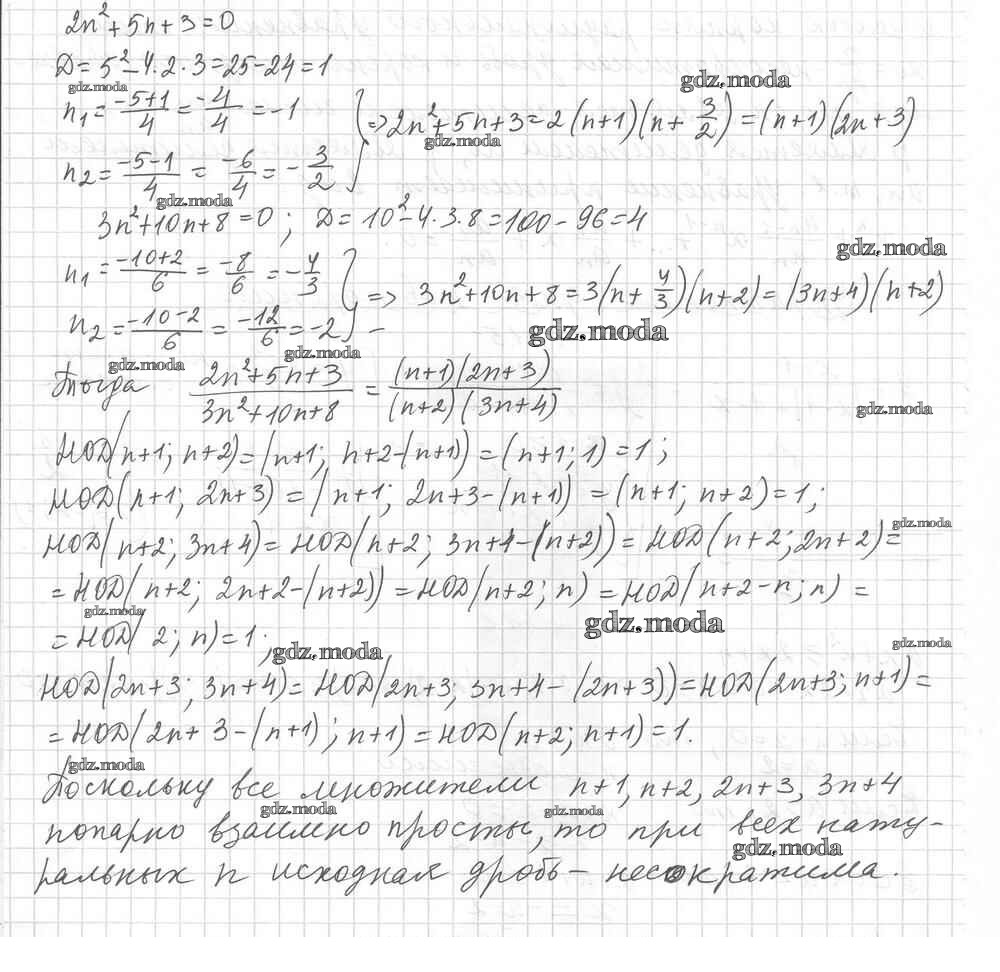 2n²+5n+3=0
D=5²-4·2·3=25-24=1
gdz.moda
gdz.moda
n₁=(-5+1)/4=-4/4=-1
} => 2n²+5n+3=2(n+1)(n+3/2)=(n+1)(2n+3)
gdz.moda
n₂=(-5-1)/4=-6/4=-3/2
gdz.moda
3n²+10n+8=0; D=10²-4·3·8=100-96=4
gdz.moda
n₁=(-10+2)/6=-8/6=-4/3
} => 3n²+10n+8=3(n+4/3)(n+2)=(3n+4)(n+2)
n₂=(-10-2)/6=-12/6=-2
gdz.moda
gdz.moda
gdz.moda
Тогда (2n²+5n+3)/(3n²+10n+8)=((n+1)(2n+3))/((n+2)(3n+4))
gdz.moda
НОД(n+1; n+2)=(n+1; n+2-(n+1))=(n+1;1)=1;
НОД(n+1; 2n+3)=(n+1; 2n+3-(n+1))=(n+1; n+2)=1;
gdz.moda
НОД(n+2; 3n+4)=НОД(n+2; 3n+4-(n+2))=НОД(n+2; 2n+2)=
=НОД(n+2; 2n+2-(n+2))=НОД(n+2; n)=НОД(n+2-n; n)=
gdz.moda
gdz.moda
=НОД(2; n)=1;
gdz.moda
gdz.moda
НОД(2n+3; 3n+4)=НОД(2n+3; 3n+4-(2n+3))=НОД(2n+3; n+1)=
=НОД(2n+3-(n+1); n+1)=НОД(n+2; n+1)=1.
gdz.moda
Поскольку все множители n+1, n+2, 2n+3, 3n+4
gdz.moda
gdz.moda
попарно взаимно просты, то при всех нату-
gdz.moda
ральных n исходная дробь - несократима.